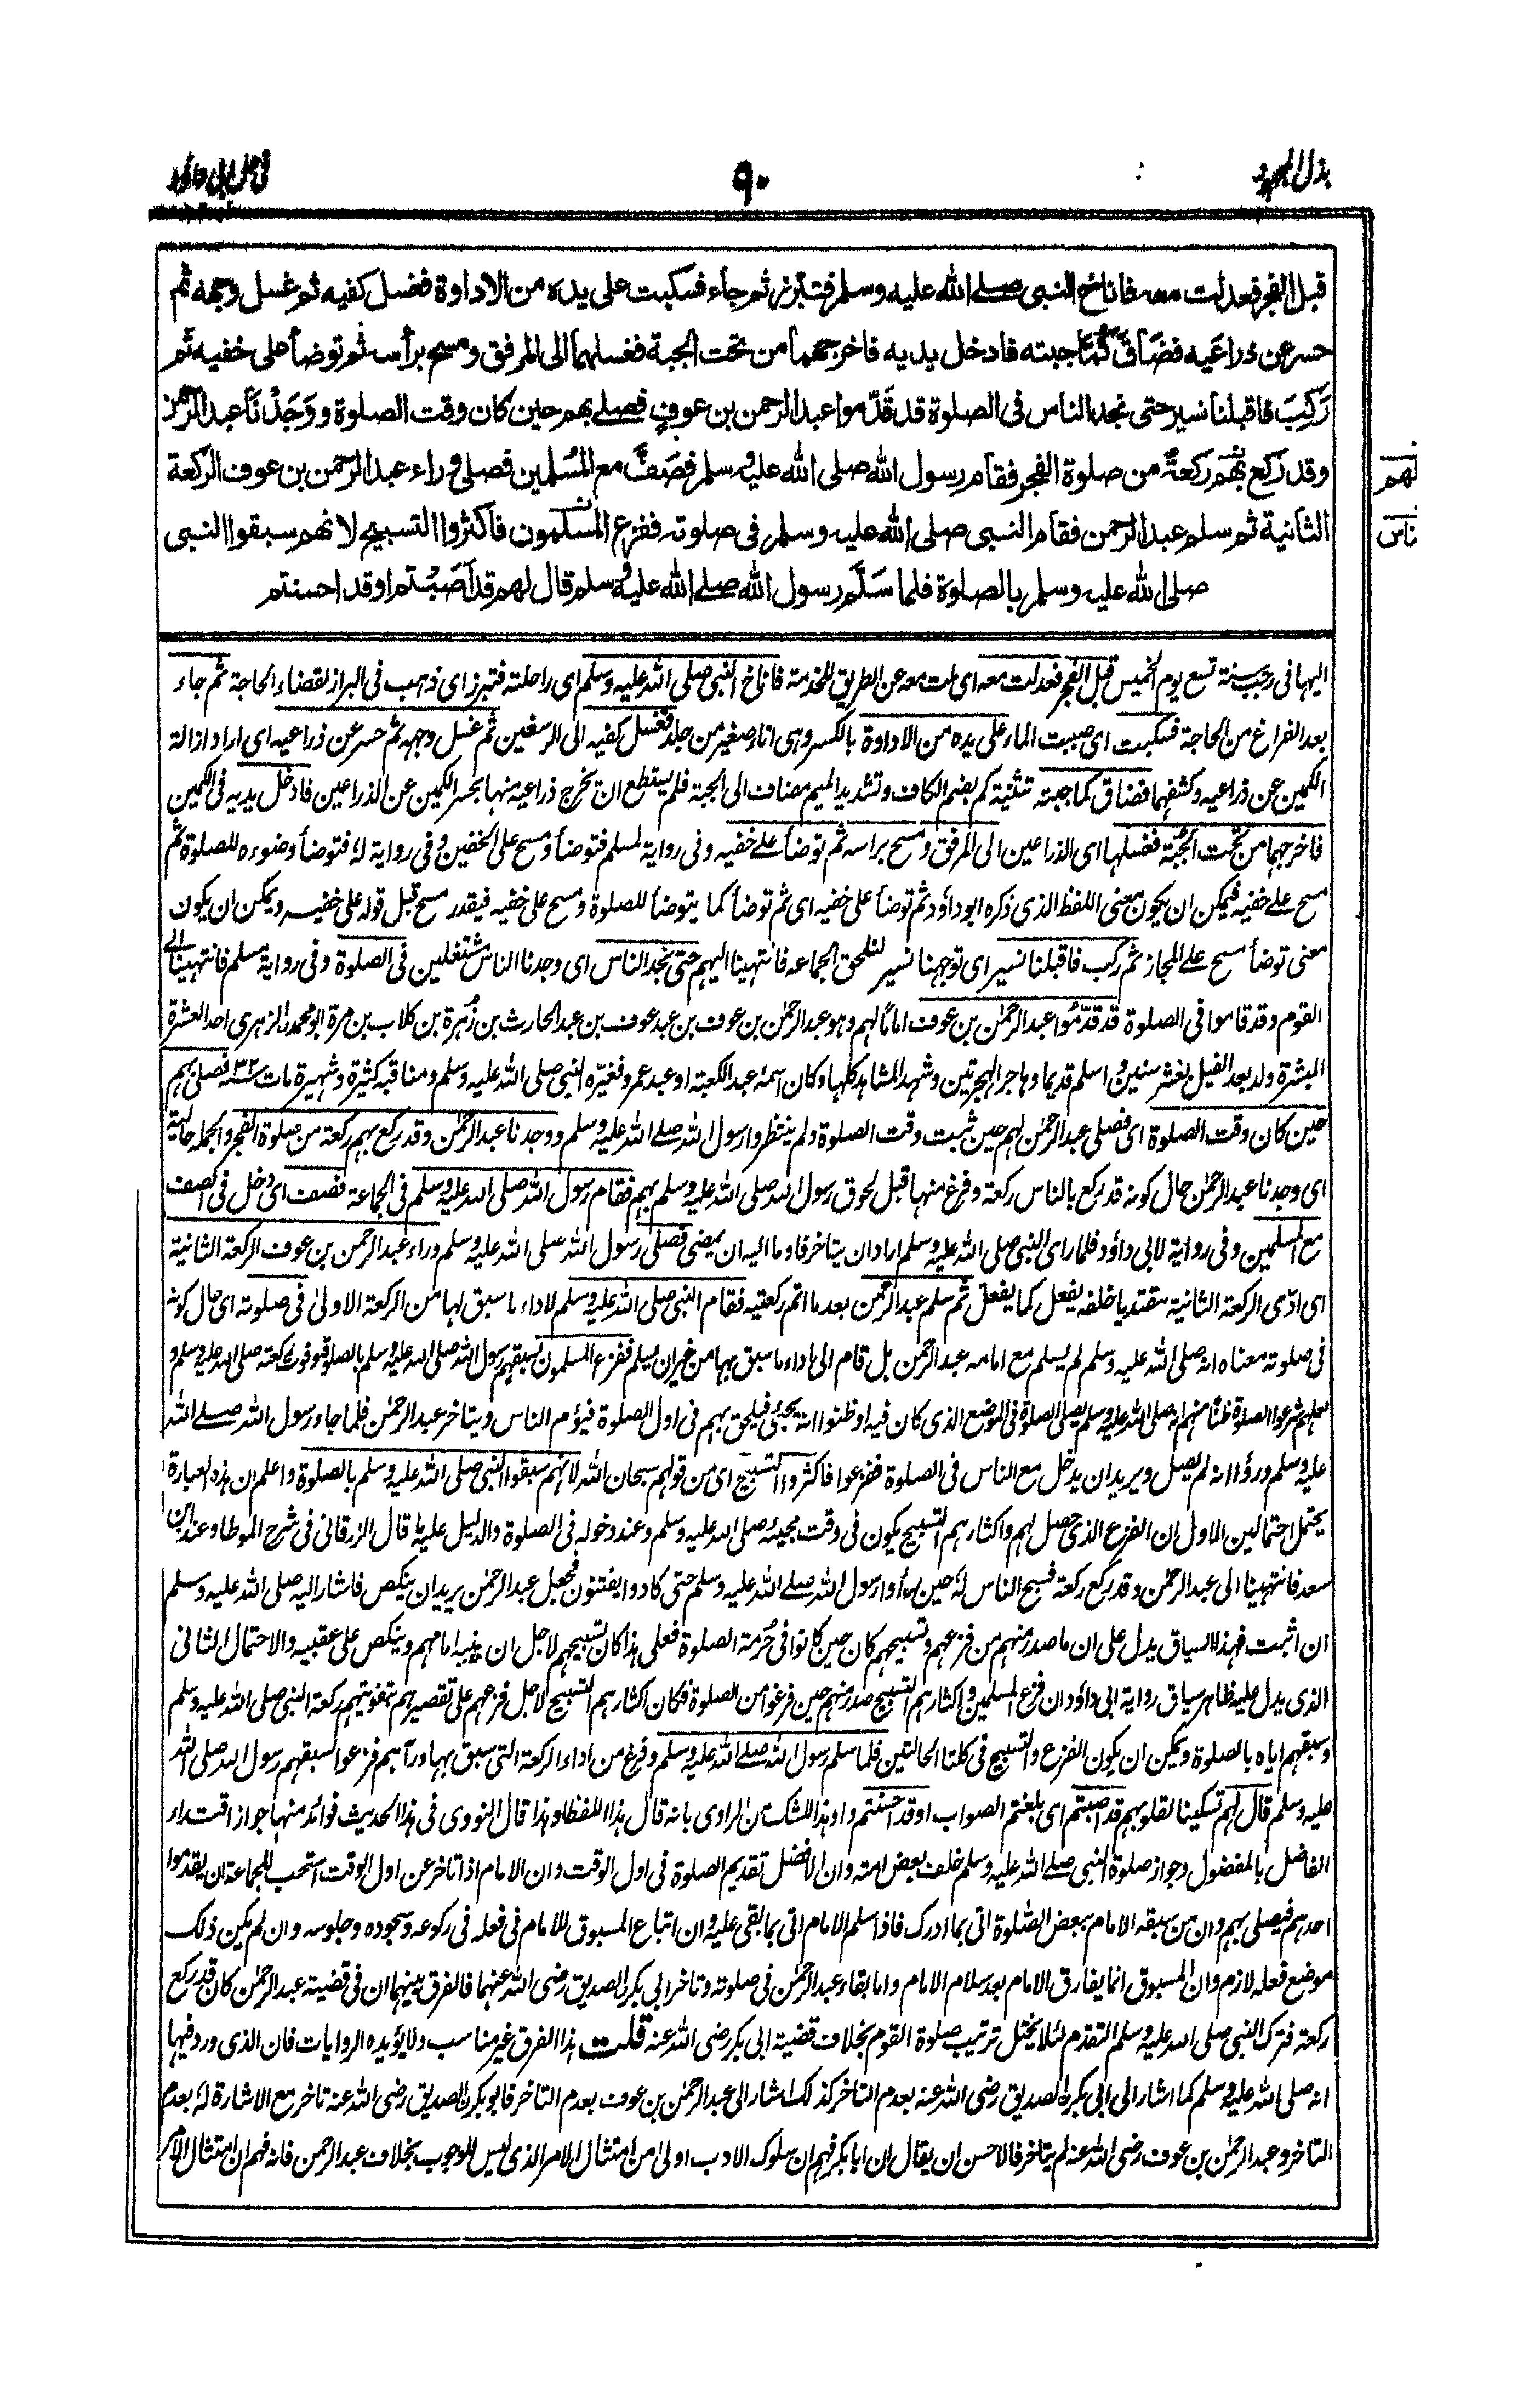 بذل المجهود
٩٠
فی حل ابی داؤد
قبل الفجر فعدلت معه فاناخ النبی صلے الله علیه وسلم فتبرز ثم جاء فسکبت علی یده من الاداوة فغسل کفیه ثم غسل وجهه ثم
حسر عن ذراعیه فضاق کما جبته فادخل یدیه فاخرجهما من تحت الجبة فغسلهما الی المرفق ومسح براسه ثم توضأ علی خفیه ثم
رَکِبَ فاقبلنا نسیر حتی نجد الناس فی الصلوة قد قَدَّموا عبد الرحمن بن عوفٍ فصلے بهم حین کان وقت الصلوة ووَجَدْنَا عبد الرحمن
وقد رکع بهم رکعةً من صلوة الفجر فقام رسول الله صلی الله علیه وسلم فصَفَّ مع المسلمین فصلی وراء عبد الرحمن بن عوف الرکعة
الثانیة ثم سلم عبد الرحمن فقام النبی صلی الله علیه وسلم فی صلوته ففزع المسلمون فاکثروا التسبیح لانهم سبقوا النبی
صلی الله علیه وسلم بالصلوة فلما سَلَّم رسول الله صلے الله علیه وسلم قال لهم قد اَصَبْتم او قد احسنتم
لهم
ناس
الیها فی رجب سنة تسع یوم الخمیس قبل الفجر فعدلت معه ای ملت معه عن الطریق للخدمة فاناخ النبی صلی الله علیه وسلم ای راحلته فتبرز ای ذهب فی البراز لقضاء الحاجة ثم جاء
بعد الفراغ من الحاجة فسکبت ای صببت الماء علی یده من الاداوة بالکسر وهی اناء صغیر من جلد فغسل کفیه الی الرسغین ثم غسل وجهه ثم حسر عن ذراعیه ای اراد ازالة
الکمین عن ذراعیه وکشفهما فضاق کما جبته تثنیة کم بضم الکاف وتشدید المیم مضاف الی الجبة فلم یستطع ان یخرج ذراعیه منهما بحسر الکمین عن الذراعین فادخل یدیه فی الکمین
فاخرجهما من تحت الجُبّة فغسلهما ای الذراعین الی المرفق ومسح براسه ثم توضأ علے خفیه وفی روایة لمسلم فتوضأ ومسح علی الخفین وفی روایة لهٗ فتوضأ وضوءه للصلوة ثم
مسح علے خفیه فیمکن ان یکون معنی اللفظ الذی ذکره ابو داؤد ثم توضأ علی خفیه ای ثم توضأ کما یتوضأ للصلوة ومسح علی خفیه فیقدر مسح قبل قوله علی خفیه ویمکن ان یکون
معنی توضأ مسح علے المجاز ثم رکب فاقبلنا نسیر ای توجهنا نسیر لنلحق الجماعه فانتهینا الیهم حتی نجد الناس ای وجدنا الناس مشتغلین فی الصلوة وفی روایة مسلم فانتهینا الے
القوم وقد قاموا فی الصلوة قد قدّمُوا عبد الرحمٰن بن عوف اماما لهم وهو عبد الرحمٰن بن عوف بن عبد عوف بن عبد الحارث بن زُهرة بن کلاب بن مرة ابو محمد الزهری احد العشرة
المبشرة ولد بعد الفیل بعشر سنین واسلم قدیما وهاجر الهجرتین وشهد المشاهد کلها وکان اسمهٗ عبد الکعبة او عبد عمرو فغیّره النبی صلی الله علیه وسلم ومناقبه کثیرة وشهیرة مات سنه ٣٢ فصلی بهم
حین کان وقت الصلوة ای فصلی عبد الرحمٰن لهم حین ثبت وقت الصلوة ولم ینتظروا رسول الله صلے الله علیه وسلم ووجدنا عبد الرحمٰن وقد رکع بهم رکعة من صلوة الفجر والجملة حالیة
ای وجدنا عبد الرحمٰن حال کونه قد رکع بالناس رکعة وفرغ منها قبل لحوق رسول الله صلی الله علیه وسلم بهم فقام رسول الله صلی الله علیه وسلم فی الجماعة فصف ای دخل فی الصف
مع المسلمین وفی روایة لابی داؤد فلما رای النبی صلی الله علیه وسلم اراد ان یتاخر فاوما الیه ان یمضی فصلی رسول الله صلی الله علیه وسلم وراء عبد الرحمن بن عوف الرکعة الثانیة
ای ادّی الرکعة الثانیة مقتدیا خلفه یفعل کما یفعل ثم سلم عبد الرحمٰن بعد ما اتم رکعتیه فقام النبی صلی الله علیه وسلم لاداء ما سبق بها من الرکعة الاولیٰ فی صلوته ای حال کونه
فی صلوته معناه انه صلی الله علیه وسلم لم یسلم مع امامه عبد الرحمٰن بل قام الی اداء ما سبق بها من غیر ان یسلم ففزع المسلمون لسبقهم رسول الله صلی الله علیه وسلم بالصلوة وفوت رکعته صلی الله علیه وسلم و
لعلهم شرعوا الصلوة ظنا منهم انه صلی الله علیه وسلم یصلی الصلوة فی الموضع الذی کان فیه او ظنوا انه یجیٔ فیلحق بهم فی اول الصلوة فیؤم الناس ویتاخر عبد الرحمٰن فلما جاء رسول الله صلے الله
علیه وسلم ورؤا انه لم یصل ویرید ان یدخل مع الناس فی الصلوة ففزعوا فاکثروا التسبیح ای من قولهم سبحان الله لانهم سبقوا النبی صلی الله علیه وسلم بالصلوة واعلم ان هذه العبارة
یحتمل احتمالین الاول ان الفزع الذی حصل لهم واکثارهم التسبیح یکون فی وقت مجیئه صلی الله علیه وسلم وعند دخوله فی الصلوة والدلیل علیه ما قال الزرقانی فی شرح الموطا وعند ابن
سعد فانتهینا الی عبد الرحمٰن وقد رکع رکعة فسبح الناس لهٗ حین رأوا رسول الله صلے الله علیه وسلم حتی کادوا یفتنون فجعل عبد الرحمٰن یرید ان ینکص فاشار الیه صلی الله علیه وسلم
ان اثبت فهذا السیاق یدل علی ان ما صدر منهم من فزعهم وتسبیحهم کان حین کانوا فی حُرمة الصلوة فعلی هذا کان تسبیحهم لاجل ان ینبه امامهم وینکص علی عقبیه والاحتمال الثانی
الذی یدل علیه ظاهر سیاق روایة ابی داؤد ان فزع المسلمین واکثارهم التسبیح صدر منهم حین فرغوا من الصلوة فکان اکثارهم التسبیح لاجل فزعهم علی تقصیرهم بتفویتهم رکعة النبی صلی الله علیه وسلم
وسبقهم ایاه بالصلوة ویمکن ان یکون الفزع والتسبیح فی کلتا الحالتین فلما سلم رسول الله صلے الله علیه وسلم وفرغ من اداء الرکعة التی سبق بها ورآهم فزعوا لسبقهم رسول الله صلی الله
علیه وسلم قال لهم تسکینا لقلوبهم قد اصبتم ای بلغتم الصواب او قد احسنتم واو هذا للشک من الراوی بانه قال هذا اللفظ او هذا قال النووی فی هذا الحدیث فوائد منها جواز اقتداء
الفاضل بالمفضول وجواز صلوة النبی صلے الله علیه وسلم خلف بعض امته وان الافضل تقدیم الصلوة فی اول الوقت وان الامام اذا تاخر عن اول الوقت استحب للجماعة ان یقدموا
احدهم فیصلی بهم وان من سبقه الامام ببعض الصلوة اتی بما ادرک فاذا سلم الامام اتی بما بقی علیه وان اتباع المسبوق للامام فی فعله فی رکوعه وسجوده وجلوسه وان لم یکن ذلک
موضع فعله لازم وان المسبوق انما یفارق الامام بعد سلام الامام واما بقاء عبد الرحمٰن فی صلوته وتاخر ابی بکر الصدیق رضی الله عنهما فالفرق بینهما ان فی قضیة عبد الرحمٰن کان قد رکع
رکعة فترک النبی صلی الله علیه وسلم التقدم لئلا یختل ترتیب صلوة القوم بخلاف قضیة ابی بکر رضی الله عنه قلت هذا الفرق غیر مناسب ولا یؤیده الروایات فان الذی ورد فیها
انه صلی الله علیه وسلم کما اشار الی ابی بکر الصدیق رضی الله عنه بعدم التاخر کذلک اشار الی عبد الرحمٰن بن عوف بعدم التاخر فابو بکر الصدیق رضی الله عنه تاخر مع الاشارة لهٗ بعدم
التاخر وعبد الرحمٰن بن عوف رضی الله عنه لم یتاخر فالاحسن ان یقال ان ابا بکر فهم ان سلوک الادب اولیٰ من امتثال الامر الذی لیس للوجوب بخلاف عبد الرحمن فانه فهم ان امتثال الامر